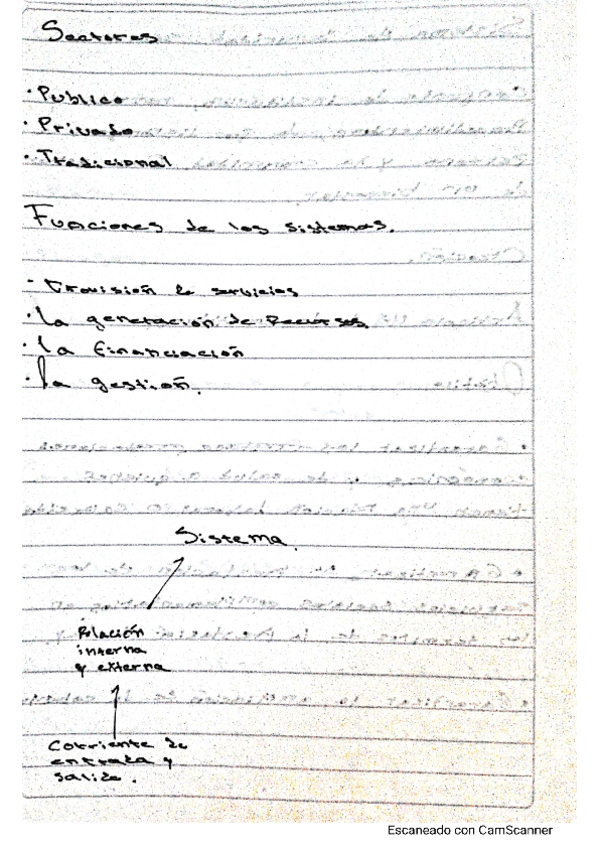 Sectores
· Publico
· Privado
· Tradicional
Funciones de los sistemas.
- Provisión de servicios
· la generación de Recursos
· la financiación
· la gestión.
Sistema
Relación
interna
y externa
Corriente de
entrada y
salida.
Escaneado con CamScanner